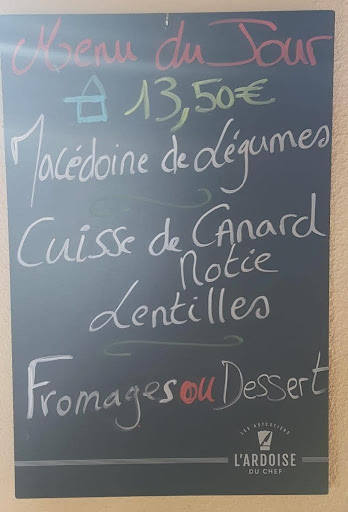 Menu du Jour
13,50€
Macédoine de Légumes
Cuisse de CAnard
Rotie
Lentilles
Fromages ou Dessert
LES ARTISTIENS
L'ARDOISE
DU CHEF